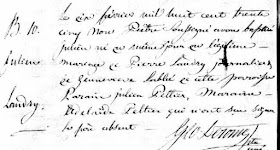 B 10.
Julien
Landry.
Le dix février mil huit cent trente
cinq Nous Prêtre soussigné avons baptisé
julien né ce même jour du légitime
mariage de Pierre Landry journalier
et Genevieve Labbé de cette paroisse
Parain julien Peltier, Maraine
Adelaide Peltier qui n'ont su signer
le père absent